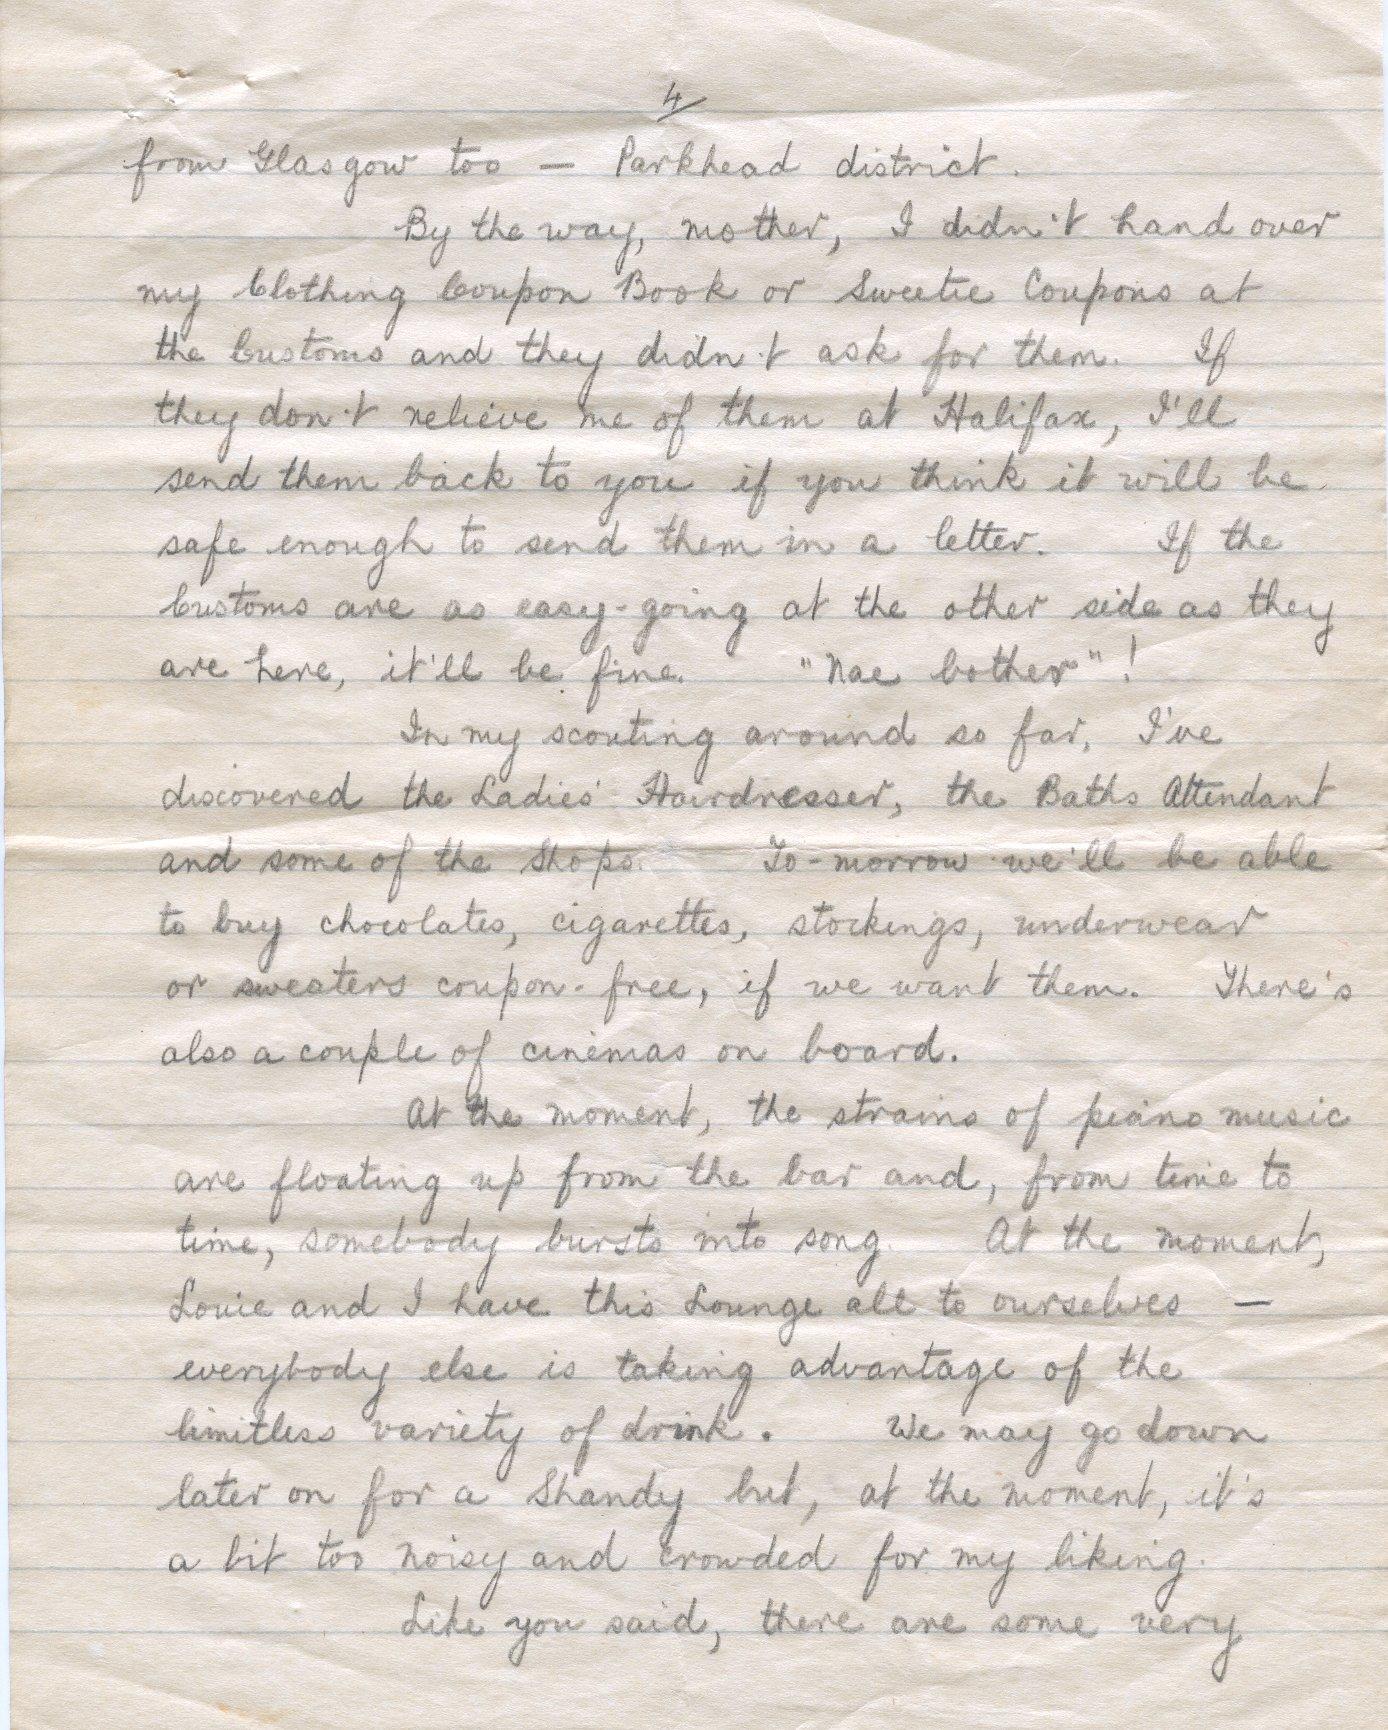 4/
from Glasgow too — Parkhead district.
By the way, mother, I didn't hand over
my Clothing Coupon Book or Sweetie Coupons at
the Customs and they didn't ask for them. If
they don't relieve me of them at Halifax, I'll
send them back to you if you think it will be
safe enough to send them in a letter. If the
Customs are as easy-going at the other side as they
are here, it'll be fine. "Nae bother"!
In my scouting around so far, I've
discovered the Ladies' Hairdresser, the Baths Attendant
and some of the Shops. To-morrow we'll be able
to buy chocolates, cigarettes, stockings, underwear
or sweaters coupon-free, if we want them. There's
also a couple of cinemas on board.
At the moment, the strains of piano music
are floating up from the bar and, from time to
time, somebody bursts into song. At the moment,
Louie and I have this Lounge all to ourselves —
everybody else is taking advantage of the
limitless variety of drink. We may go down
later on for a Shandy but, at the moment, it's
a bit too noisy and crowded for my liking.
Like you said, there are some very